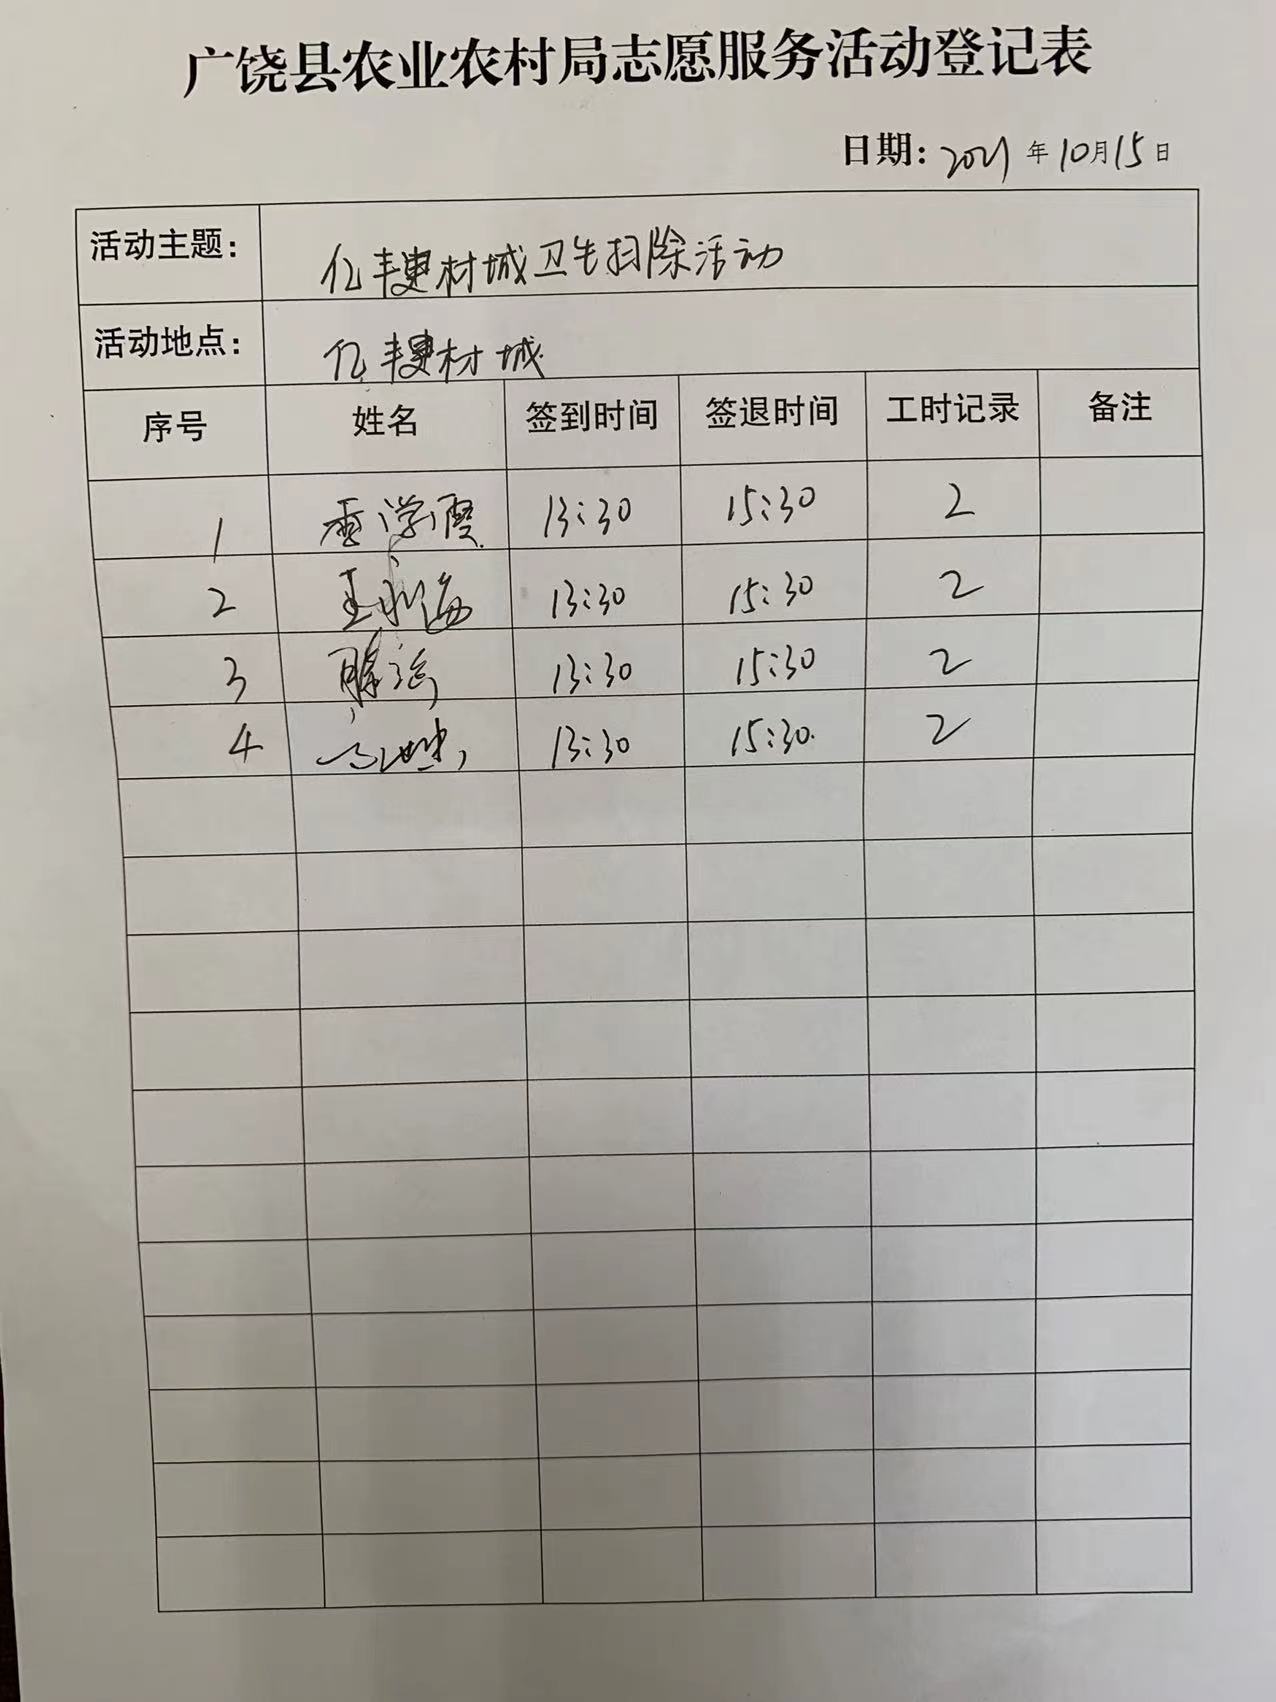 广饶县农业农村局志愿服务活动登记表
日期: 2021 年 10月15日
活动主题: 亿丰建材城卫生扫除活动
活动地点: 亿丰建材城
序号 姓名 签到时间 签退时间 工时记录 备注
1 13:30 15:30 2
2 王永海 13:30 15:30 2
3 13:30 15:30 2
4 13:30 15:30 2